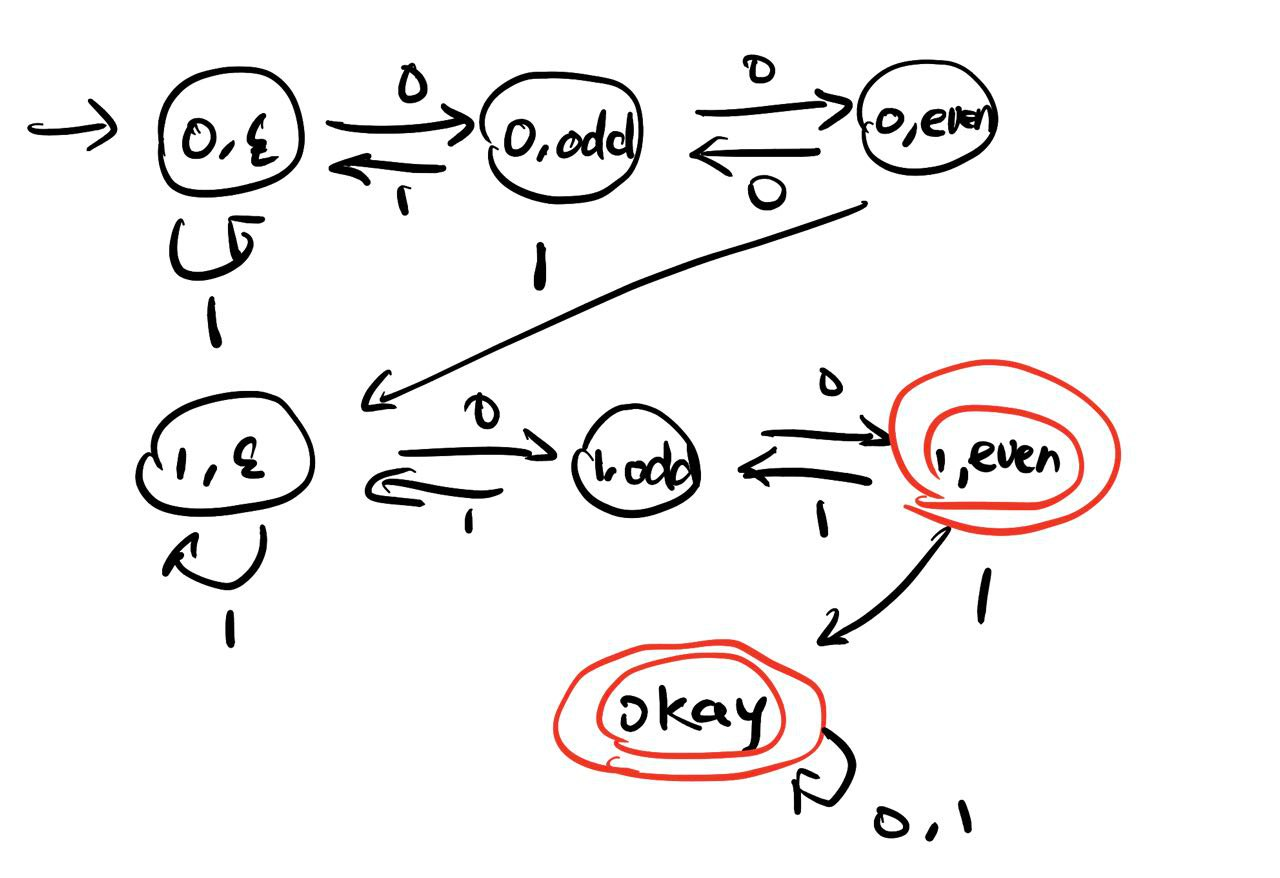 0 0
0,ε 0,odd 0,even
1 0
1
1
0 0
1,ε 1,odd 1,even
1 1
1 1
okay
0,1